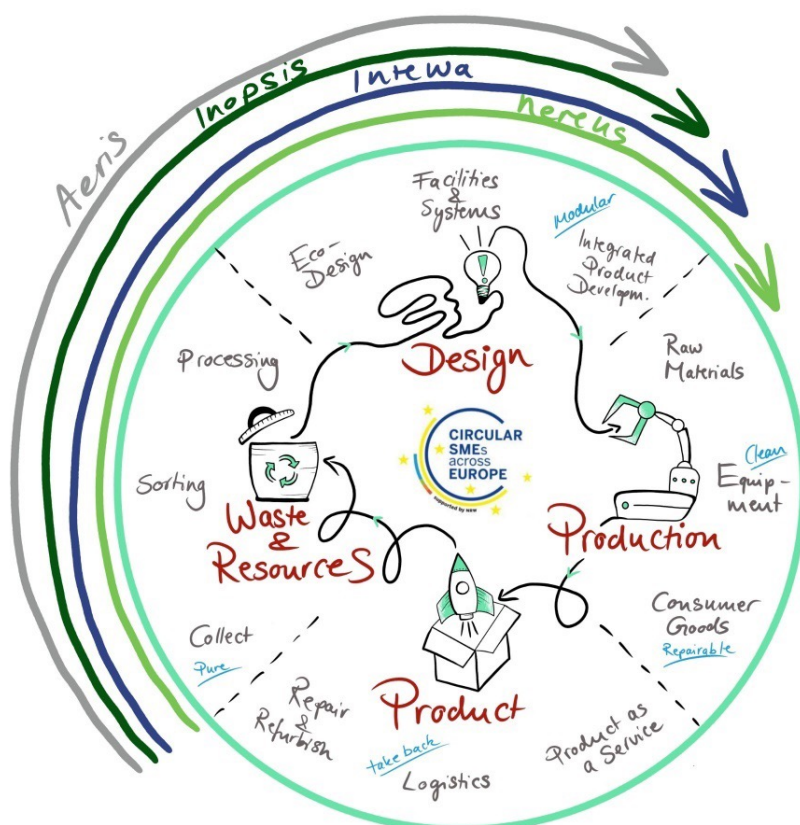 Aeris
Inopsis
Intewa
nereus
Facilities
&
Systems
Modular
Integrated
Product
Developm.
Eco-
Design
Design
Raw
Materials
Processing
Clean
Equip-
ment
Sorting
CIRCULAR
SMEs
across
EUROPE
supported by NRW
Waste
&
Resources
Production
Consumer
Goods
Repairable
Collect
Pure
Repair
&
Refurbish
Product
take back
Logistics
Product as
a Service